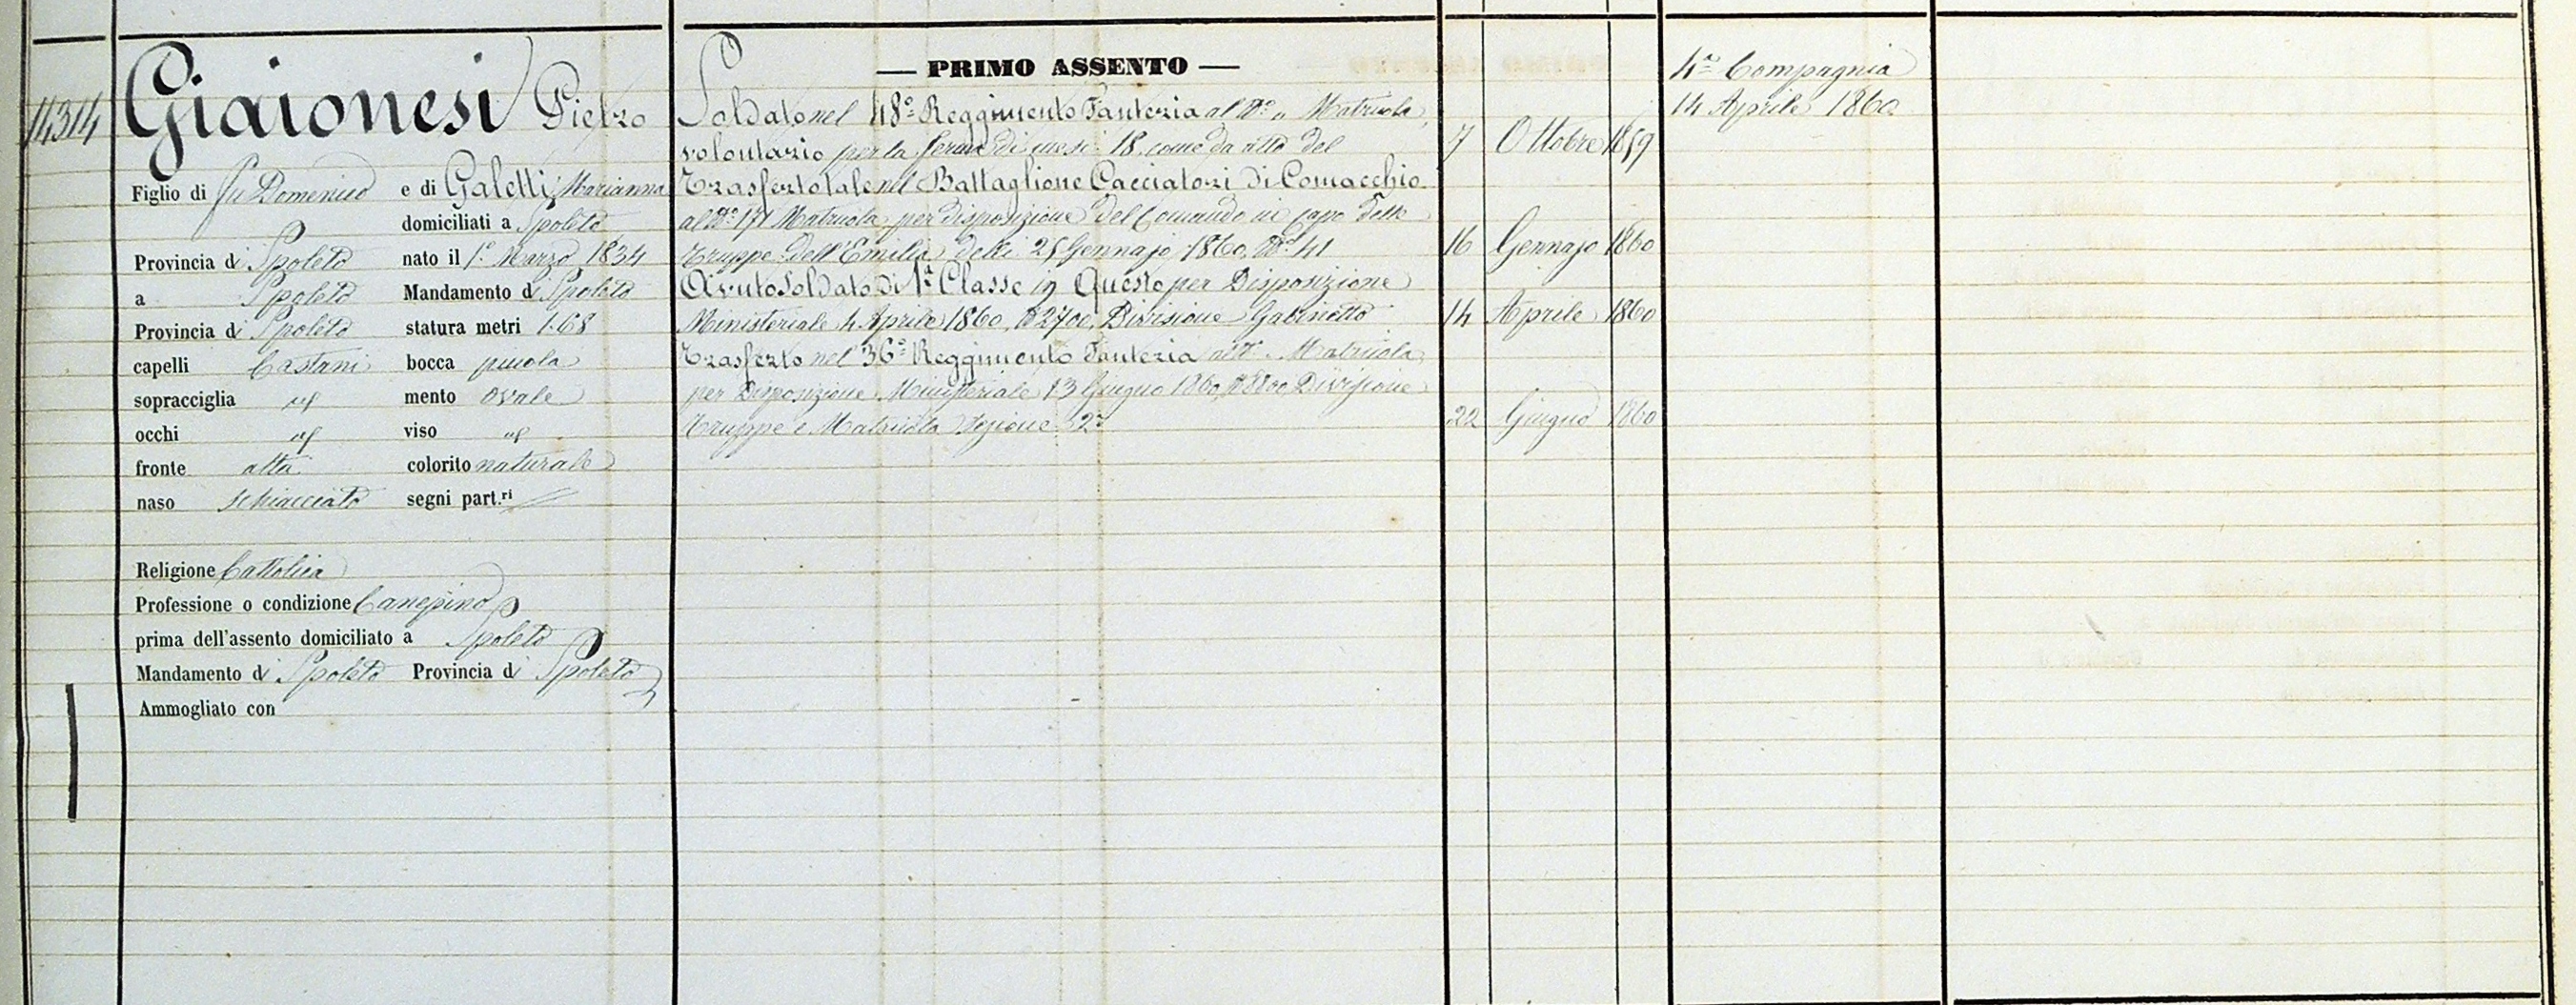 14314
Giaionesi Pietro
Figlio di fu Domenico e di Galetti Marianna
domiciliati a Spoleto
Provincia di Spoleto nato il 1º Marzo 1834
a Spoleto Mandamento di Spoleto
Provincia di Spoleto statura metri 1.68
capelli Castani bocca piccola
sopracciglia id mento ovale
occhi id viso id
fronte alta colorito naturale
naso schiacciato segni part.ri
Religione Cattolica
Professione o condizione Canepino
prima dell'assento domiciliato a Spoleto
Mandamento di Spoleto Provincia di Spoleto
Ammogliato con
— PRIMO ASSENTO —
Soldato nel 48º Reggimento Fanteria al Nº " Matricola,
volontario per la ferma di mesi 18, come da atto del 7 Ottobre 1859
Trasferto tale nel Battaglione Cacciatori di Comacchio
al Nº 171 Matricola per disposizione del Comando in Capo delle
Truppe dell'Emilia delli 25 Gennajo 1860, Nº 41 16 Gennajo 1860
Avuto Soldato di 1ª Classe in Questo per Disposizione
Ministeriale 4 Aprile 1860, Nº 2700, Divisione Gabinetto 14 Aprile 1860
Trasferto nel 36º Reggimento Fanteria al Nº Matricola
per Disposizione Ministeriale 13 Giugno 1860, Nº 8800, Divisione
Truppe e Matricola Sezione 2ª 22 Giugno 1860
4ª Compagnia
14 Aprile 1860